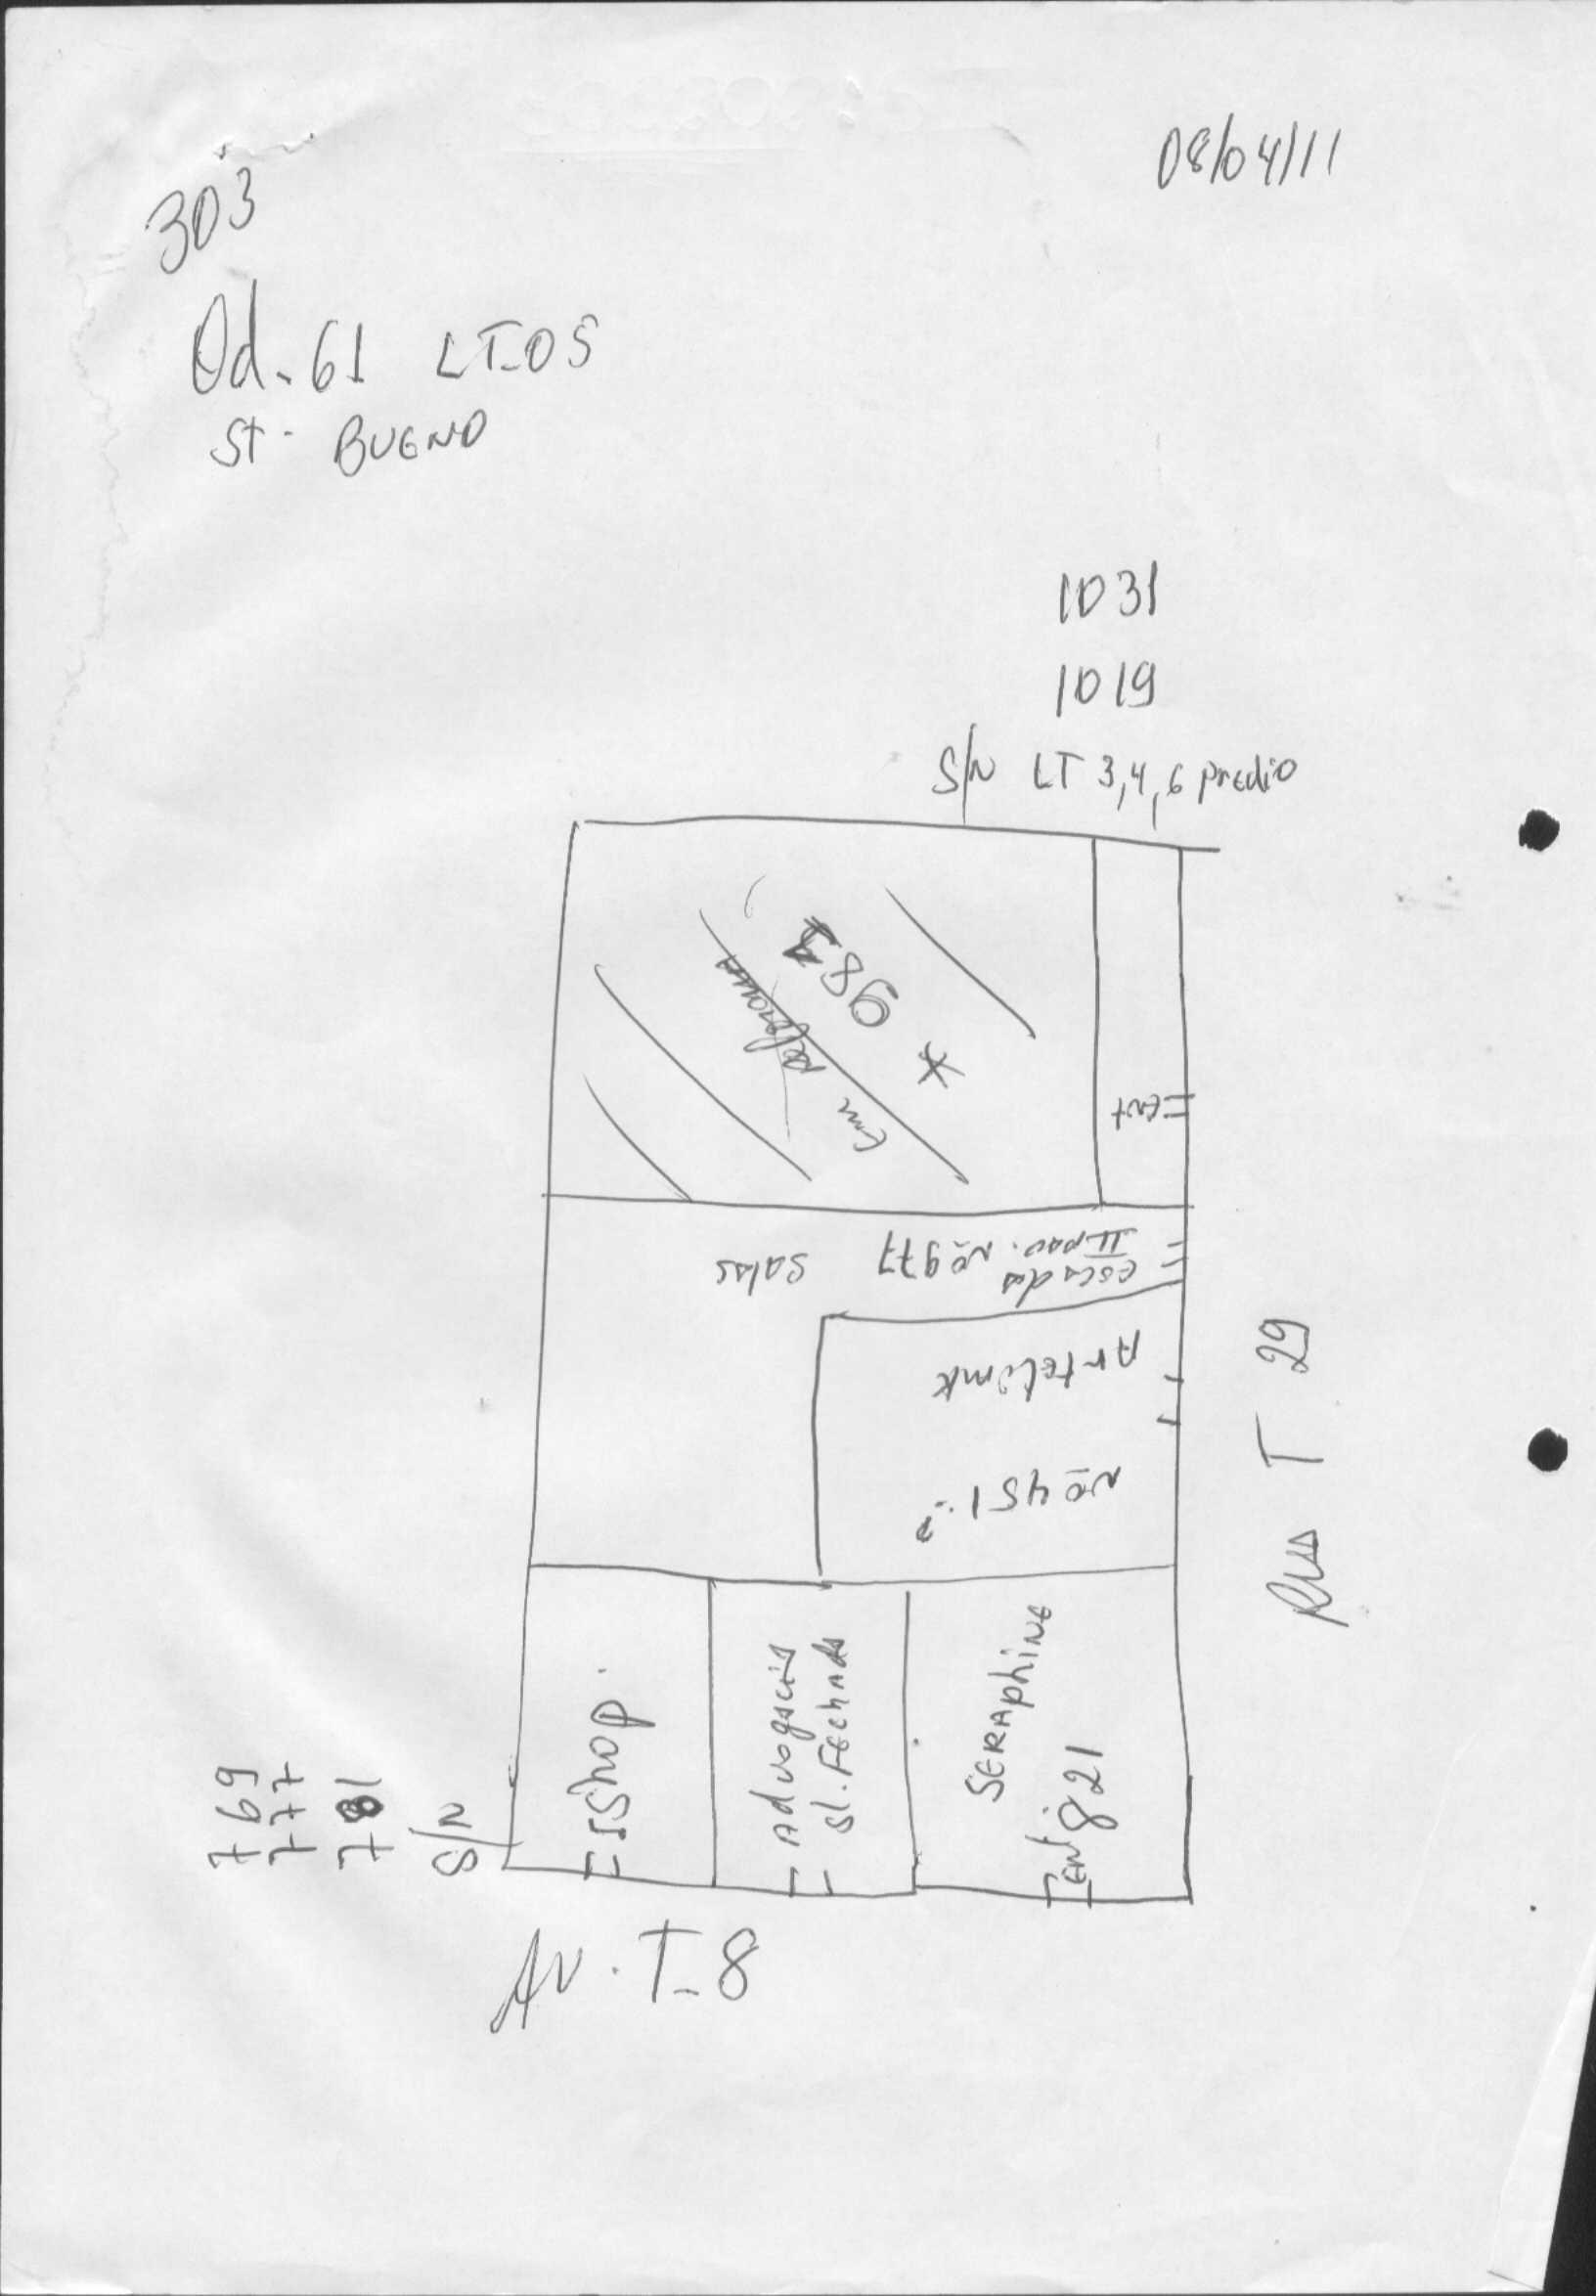 08/04/11
303
Qd. 61 LT-05
St. BUENO
1031
1019
S/N LT 3,4,6 predio
* 983
em reforma
Ent
escada
II pav. nº 977
salas
Artelimk
nº 451 ?
ISHOP.
Advogacia
Sl. Fechada
SERAphiNE
Ent 821
769
777
781
S/N
Rua T 29
AV. T-8